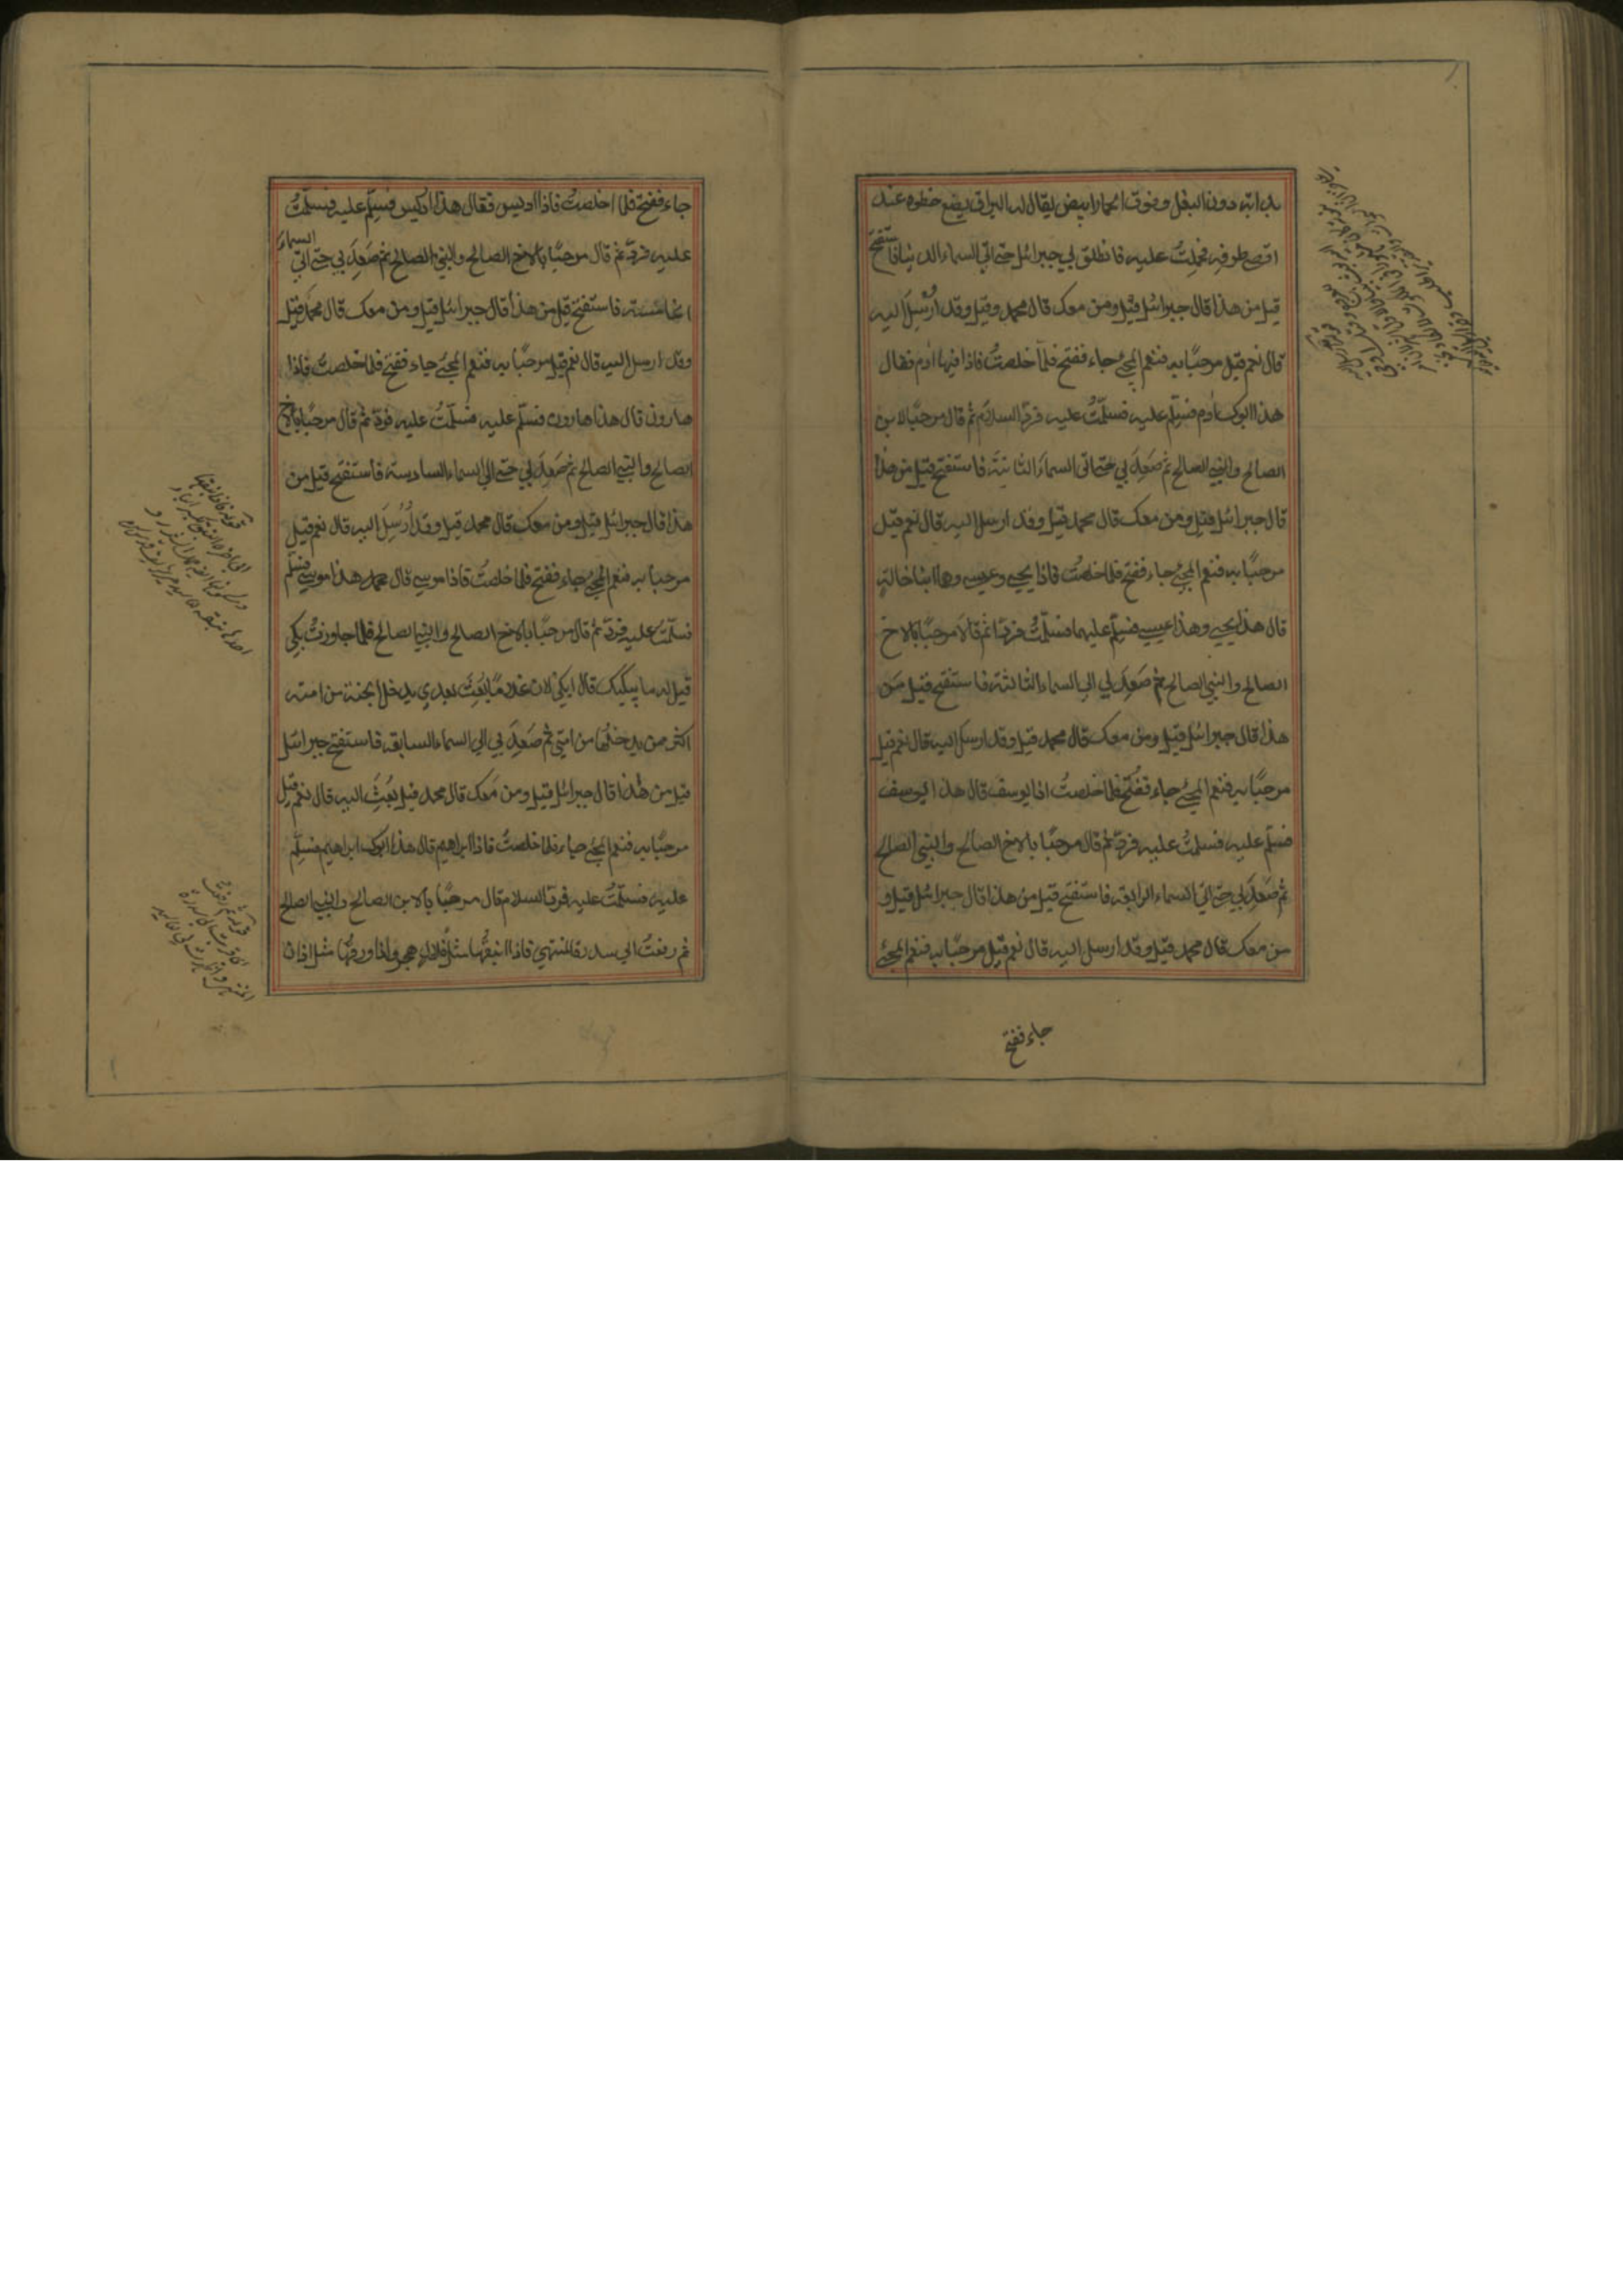 بدابته دون البغل وفوق الحمار ابيض يقال له البراق يضع خطوه عند
اقصى طرفه فحملت عليه فانطلق بي جبرائيل حتى اتي السماء الدنيا فاستفتح
قيل من هذا قال جبرائيل قيل ومن معك قال محمد وقيل وقد اُرْسِلَ اليه
قال نعم قيل مرحبًا به فنعم المجئ جاء ففتح فلما خلصتُ فاذا فيها ادم فقال
هذا ابوك ادم فسلّم عليه فسلّمتُ عليه فردّ السلام ثم قال مرحبًا بالابن
الصالح والنبي الصالح ثم صَعِدَ بي حتى اتى السماءَ الثانيَةَ فاستفتح قيل من هذا
قال جبرائيل قيل ومن معك قال محمد قيل وقد ارسل اليه قال نعم قيل
مرحبًا به فنعم المجئ جاء ففتح فلما خلصت فاذا يحيى وعيسى وهما ابنا خالة
قال هذا يحيى وهذا عيسى فسلّم عليهما فسلّمتُ فردّا ثم قالا مرحبًا بالاخ
الصالح والنبي الصالح ثم صَعِدَ بي الى السماء الثالثة فاستفتح قيل من
هذا قال جبرائيل قيل ومن معك قال محمد قيل وقد ارسل اليه قال نعم قيل
مرحبًا به فنعم المجئ جاء ففُتح فلما خلصتُ اذا يوسف قال هذا يوسف
فسلّم عليه فسلمتُ عليه فردّ ثم قال مرحبًا بالاخ الصالح والنبي الصالح
ثم صَعِدَ بي حتى اتي السماء الرابعة فاستفتح قيل من هذا قال جبرائيل قيل و
من معك قال محمد قيل وقد ارسل اليه قال نعم قيل مرحبًا به فنعم المجئ
جاء ففتح
جاء ففتح فلما خلصتُ فاذا ادريس فقال هذا ادريس فسلِّم عليه فسلّمتُ
عليه فردّ ثم قال مرحبًا بالاخ الصالح والنبي الصالح ثم صَعِدَ بي حتى اتي السماءَ
الخامسة فاستفتح قيل من هذا قال جبرائيل قيل ومن معك قال محمد قيل
وقد ارسل اليه قال نعم قيل مرحبًا به فنعم المجئ جاء ففتح فلما خلصت فاذا
هارون قال هذا هارون فسلّم عليه فسلّمتُ عليه فردّ ثم قال مرحبًا بالاخ
الصالح والنبي الصالح ثم صَعِدَ بي حتى اتي السماء السادسة فاستفتح قيل من
هذا قال جبرائيل قيل ومن معك قال محمد قيل وقد اُرْسِلَ اليه قال نعم قيل
مرحبا به فنعم المجئ جاء ففتح فلما خلصتُ فاذا موسى قال محمد هذا موسى فسلّم
فسلّمتُ عليه فردّ ثم قال مرحبًا بالاخ الصالح والنبي الصالح فلما جاوزتُ بكي
قيل له ما يبكيك قال ابكي لان غلامًا بُعِثَ بعدي يدخل الجنة من امته
اكثر من يدخلُها من امتي ثم صَعِدَ بي الى السماء السابعة فاستفتح جبرائيل
قيل من هذا قال جبرائيل قيل ومن مَعك قال محمد قيل بُعِثَ اليه قال نعم قيل
مرحبًا به فنعم المجئ جاء فلما خلصتُ فاذا ابراهيم قال هذا ابوك ابراهيم فسلّم
عليه فسلّمتُ عليه فرد السلام قال مرحبًا بالابن الصالح والنبي الصالح
ثم رفعتُ الى سدرة المنتهي فاذا نبقُها مثل قلال هجر واذا ورقُها مثل اذان